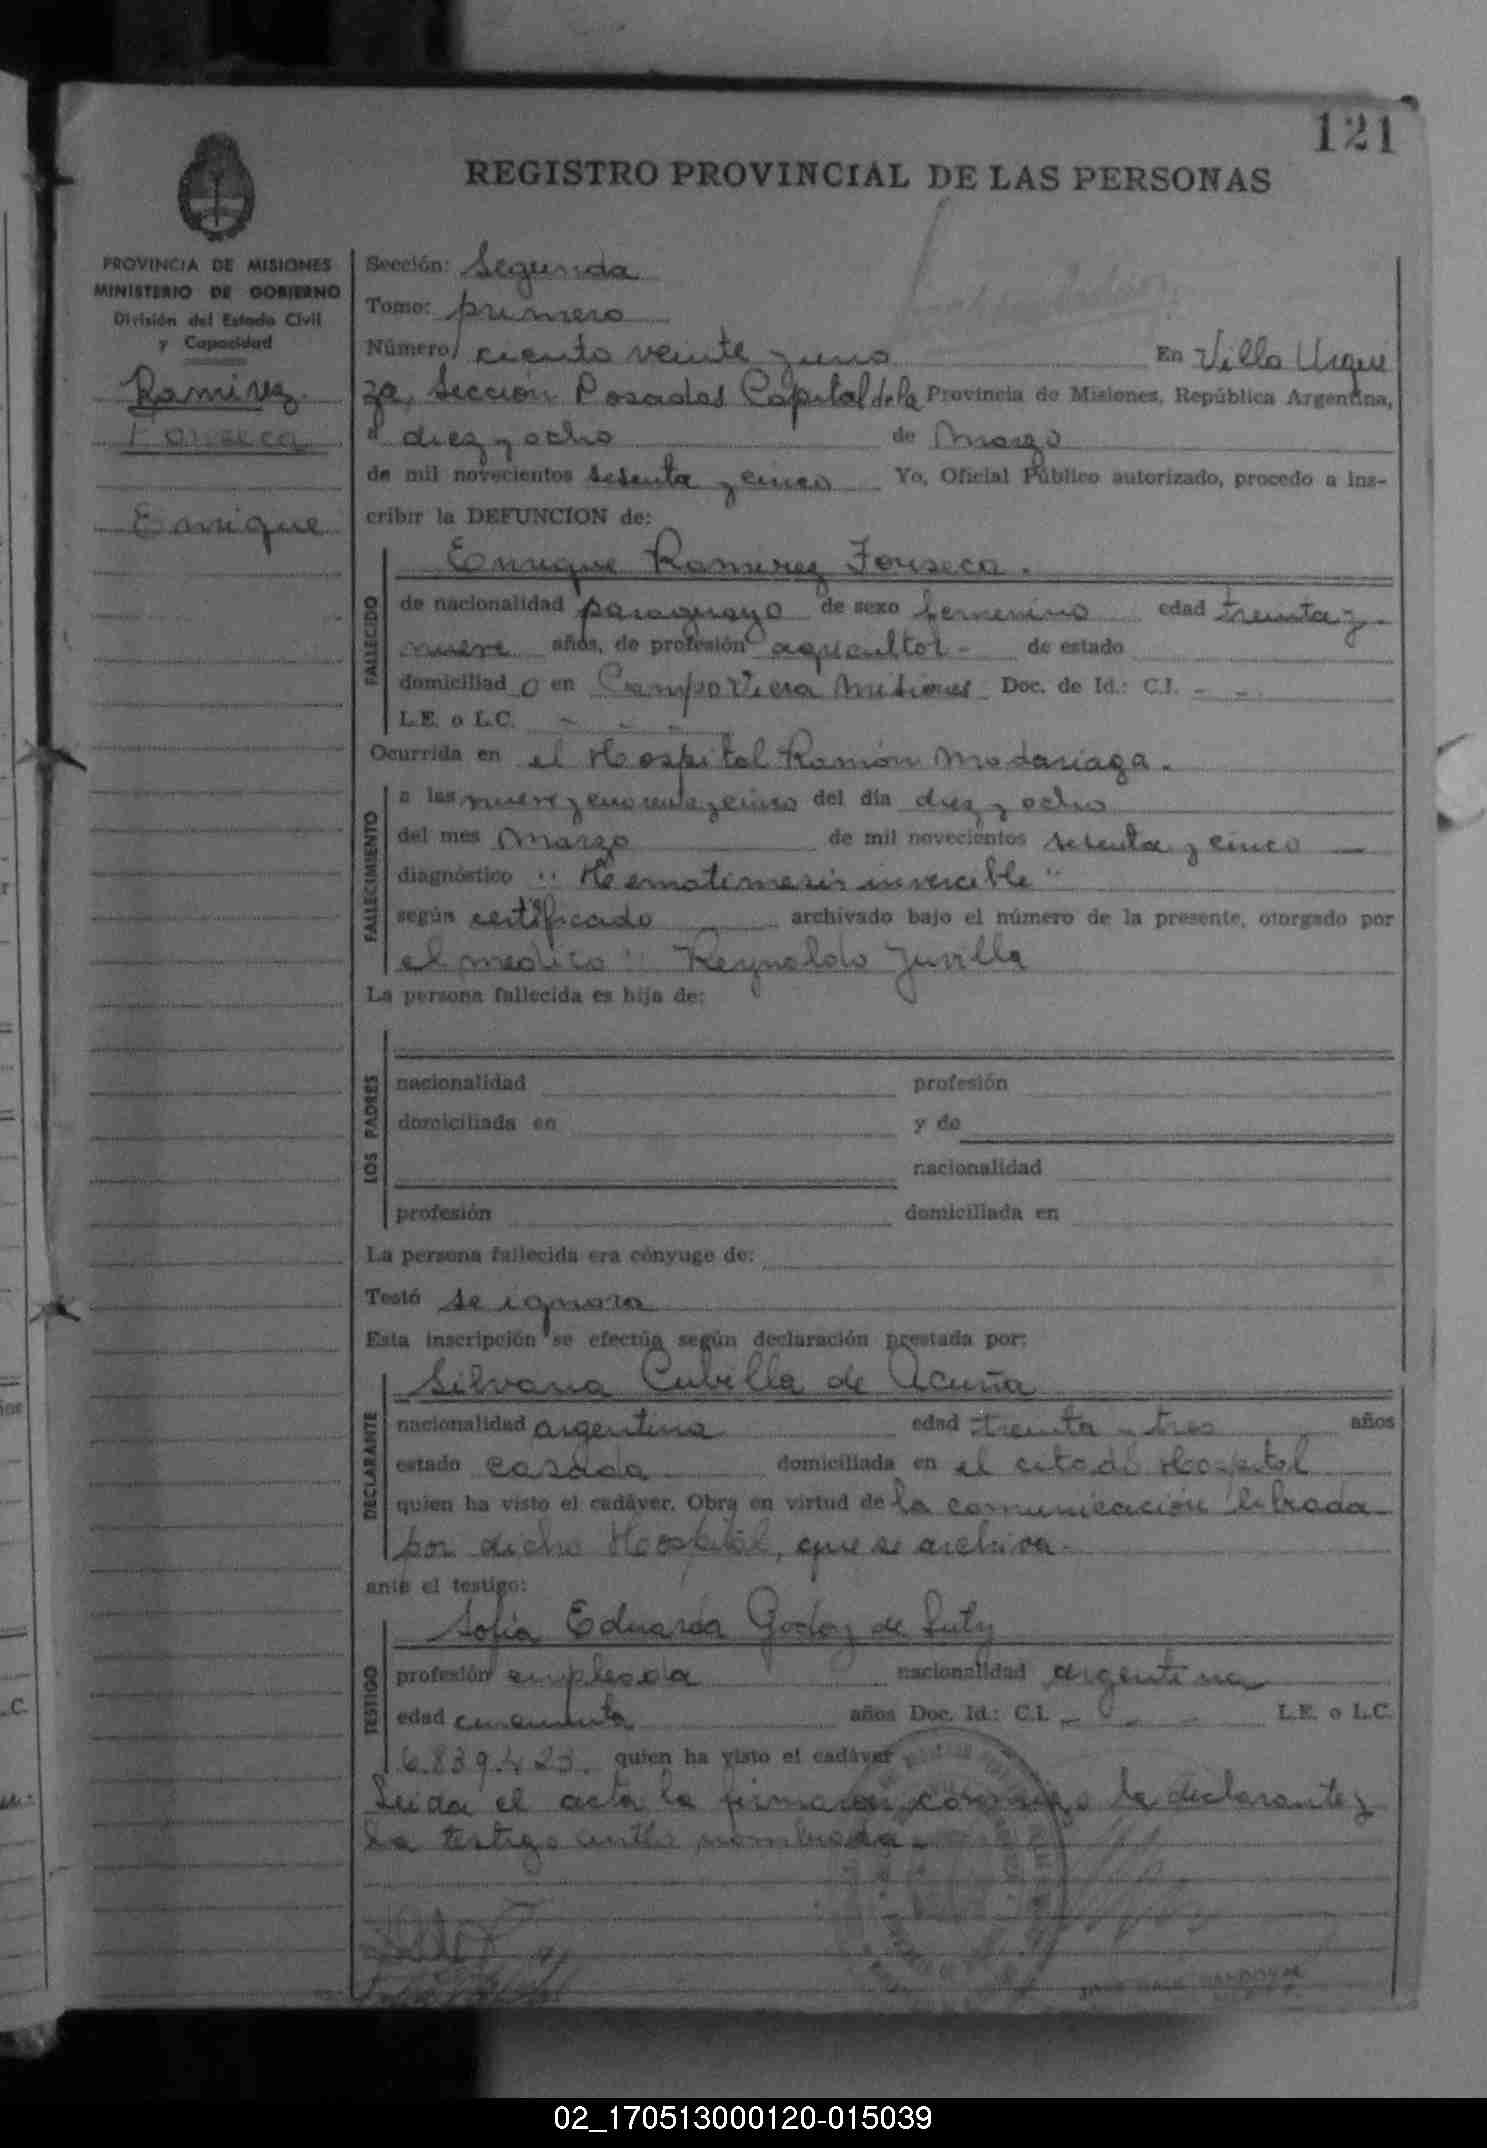 121
REGISTRO PROVINCIAL DE LAS PERSONAS
PROVINCIA DE MISIONES
MINISTERIO DE GOBIERNO
División del Estado Civil
y Capacidad
Ramirez
Fonseca
Enrique
Sección: Segunda
Tomo: primero
Número, ciento veinte y uno En Villa Urqui
za, Sección Posadas Capital de la Provincia de Misiones, República Argentina,
a diez y ocho de Marzo
de mil novecientos setenta y cinco Yo, Oficial Público autorizado, procedo a ins-
cribir la DEFUNCION de:
FALLECIDO
Enrique Ramirez Fonseca.
de nacionalidad paraguayo de sexo femenino edad treinta y
nueve años, de profesión agricultor - de estado
domiciliad o en Campo Viera Misiones Doc. de Id.: C.I. - -
L.E. o L.C. - - -
Ocurrida en el Hospital Ramón Madariaga.
FALLECIMIENTO
a las nueve y cincuenta y cinco del día diez y ocho
del mes Marzo de mil novecientos setenta y cinco —
diagnóstico " Hematimesis invercible "
según certificado archivado bajo el número de la presente, otorgado por
el medico: Reynaldo Juvilla
La persona fallecida es hija de:
LOS PADRES
nacionalidad profesión
domiciliada en y de
nacionalidad
profesión domiciliada en
La persona fallecida era cónyuge de:
Testó se ignora
Esta inscripción se efectúa según declaración prestada por:
DECLARANTE
Silvana Cubilla de Acuña
nacionalidad argentina edad treinta y tres años
estado casada domiciliada en el citado Hospital
quien ha visto el cadáver. Obra en virtud de la comunicación librada
por dicho Hospital, que se archiva.
ante el testigo:
TESTIGO
Sofia Eduarda Godoy de Luty
profesión empleada nacionalidad argentina
edad cincuenta años Doc. Id.: C.I. - - - L.E. o L.C.
6.839.423. quien ha visto el cadáver
Leida el acta la firmaron conmigo la declarante y
la testigo nombrada.
02_170513000120-015039